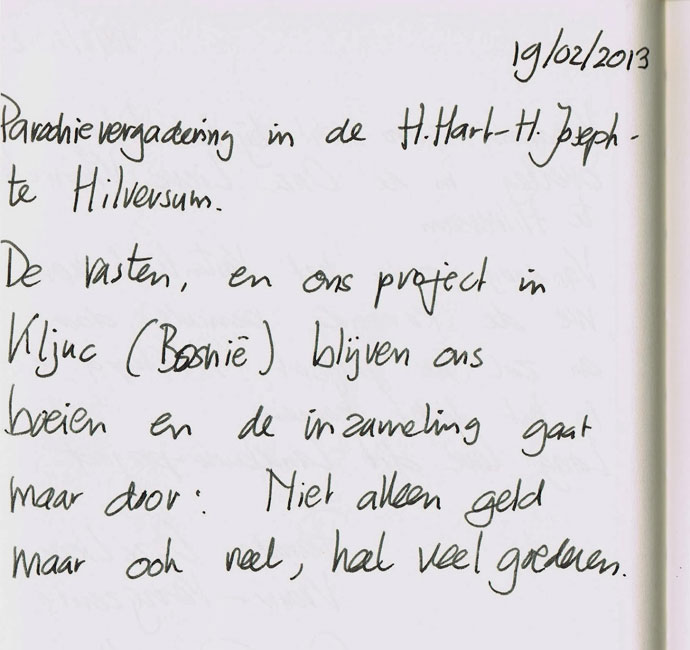 19/02/2013
Parochievergadering in de H.Hart-H.Joseph-
te Hilversum.
De vasten, en ons project in
Kljuc (Bosnië) blijven ons
boeien en de inzameling gaat
maar door: Niet alleen geld
maar ook veel, heel veel goederen.